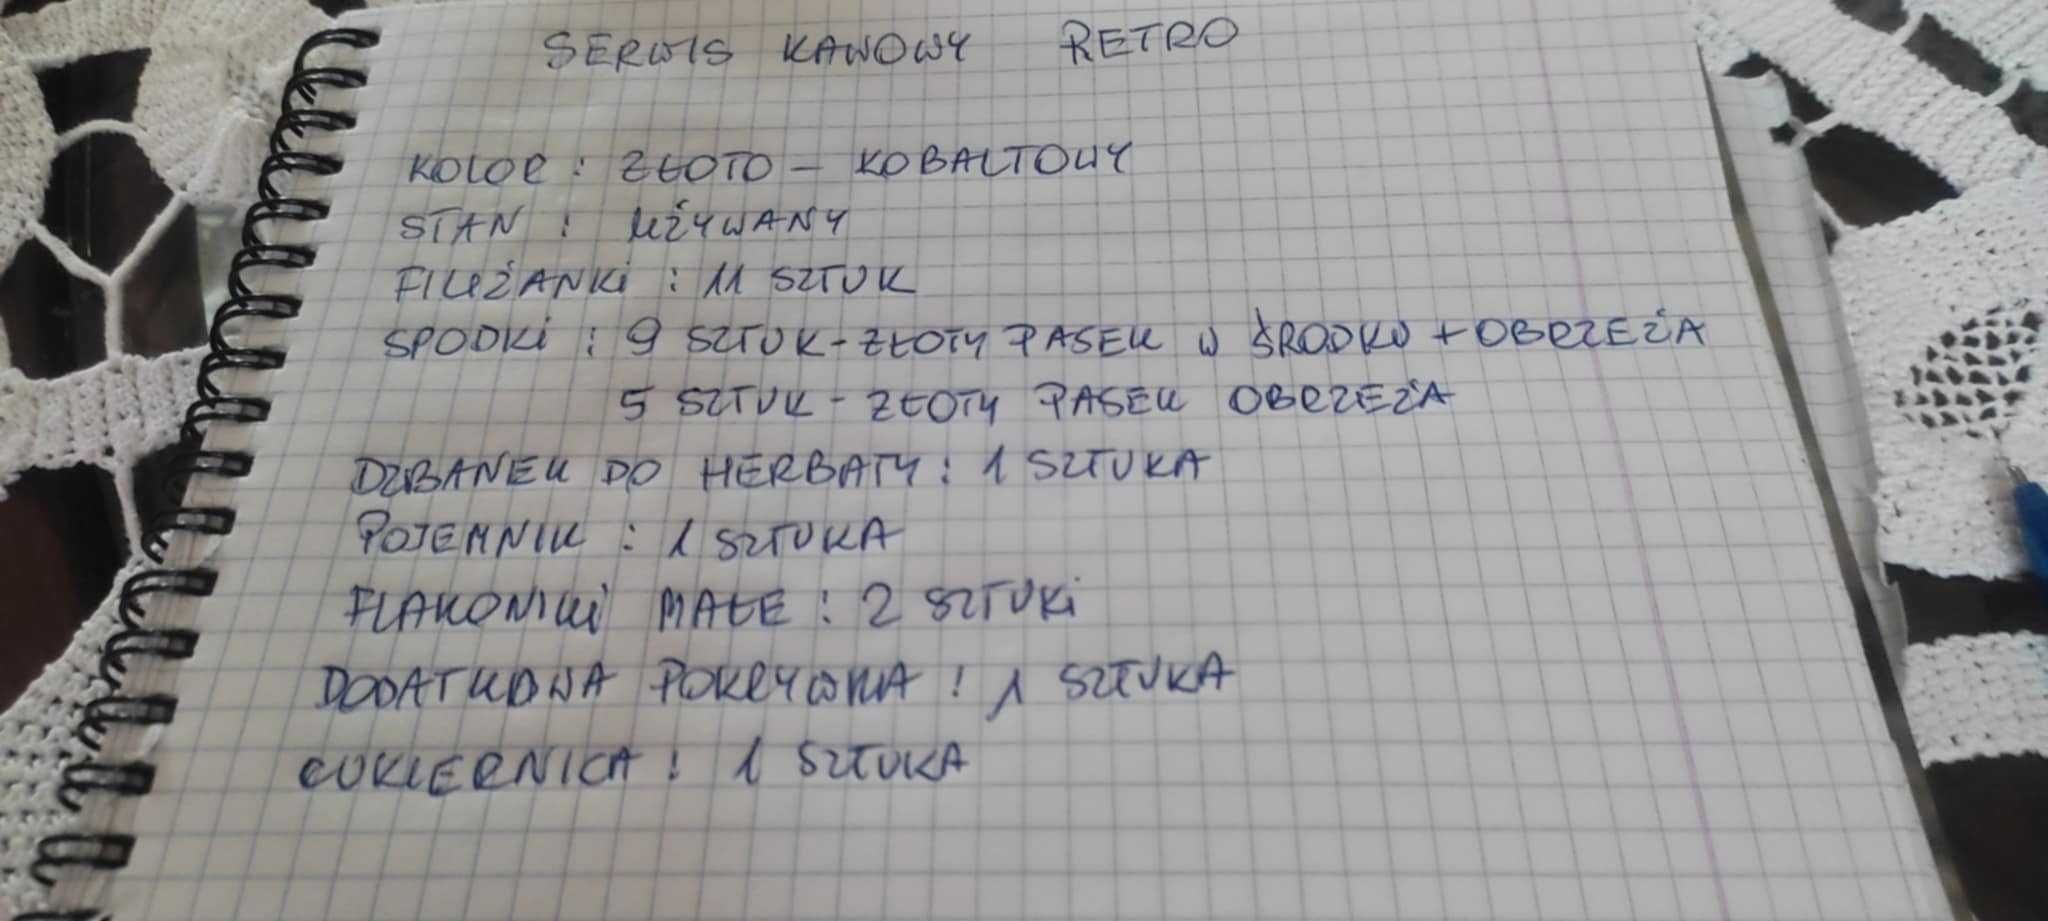 SERWIS KAWOWY RETRO
KOLOR : ZŁOTO - KOBALTOWY
STAN : UŻYWANY
FILIŻANKI : 11 SZTUK
SPODKI : 9 SZTUK - ZŁOTY PASEK W ŚRODKU + OBRZEŻA
5 SZTUK - ZŁOTY PASEK OBRZEŻA
DZBANEK DO HERBATY : 1 SZTUKA
POJEMNIK : 1 SZTUKA
FLAKONIKI MAŁE : 2 SZTUKI
DODATKOWA POKRYWKA : 1 SZTUKA
CUKIERNICA : 1 SZTUKA